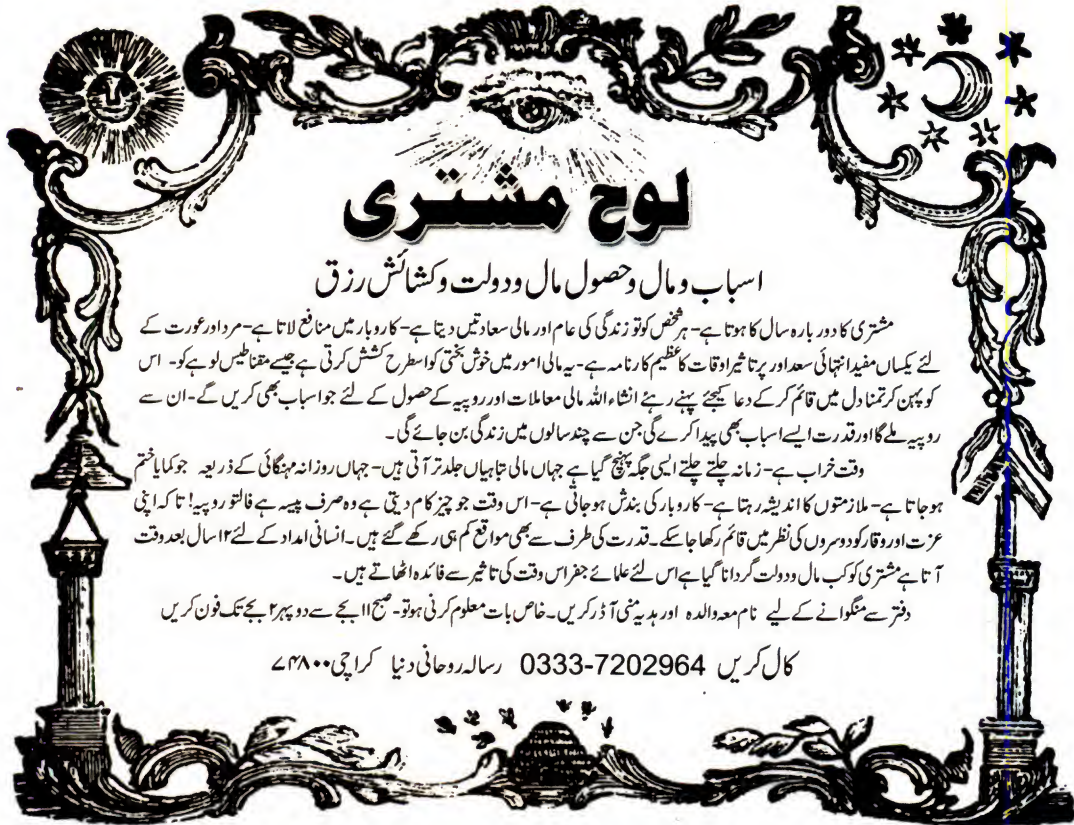 لوح مشتری
اسباب و مال و حصول مال و دولت و کشائش رزق
مشتری کا دور بارہ سال کا ہوتا ہے- ہر شخص کو تو زندگی کی عام اور مالی سعادتیں دیتا ہے- کاروبار میں منافع لاتا ہے- مرد اور عورت کے
لئے یکساں مفید انتہائی سعد اور پر تاثیر اوقات کا عظیم کارنامہ ہے- یہ مالی امور میں خوش بختی کو اسطرح کشش کرتی ہے جیسے مقناطیس لوہے کو- اس
کو پہن کر تمنا دل میں قائم کرکے دعا کیجئے پہنے رہئے انشاء اللہ مالی معاملات اور روپیہ کے حصول کے لئے جو اسباب بھی کریں گے- ان سے
روپیہ ملے گا اور قدرت ایسے اسباب بھی پیدا کرے گی جن سے چند سالوں میں زندگی بن جائے گی۔
وقت خراب ہے- زمانہ چلتے چلتے ایسی جگہ پہنچ گیا ہے جہاں مالی تباہیاں جلد تر آتی ہیں- جہاں روزانہ مہنگائی کے ذریعہ جو کمایا ختم
ہو جاتا ہے- ملازمتوں کا اندیشہ رہتا ہے- کاروبار کی بندش ہو جاتی ہے- اس وقت جو چیز کام دیتی ہے وہ صرف پیسہ ہے فالتو روپیہ! تا کہ اپنی
عزت اور وقار کو دوسروں کی نظر میں قائم رکھا جا سکے۔ قدرت کی طرف سے بھی مواقع کم ہی رکھے گئے ہیں۔ انسانی امداد کے لئے ۱۲ سال بعد وقت
آتا ہے مشتری کو کب مال و دولت گردانا گیا ہے اس لئے علمائے جفر اس وقت کی تاثیر سے فائدہ اٹھاتے ہیں۔
دفتر سے منگوانے کے لیے نام معہ والدہ اور ہدیہ منی آڈر کریں۔ خاص بات معلوم کرنی ہو تو- صبح ۱۱ بجے سے دوپہر ۲ بجے تک فون کریں
کال کریں 0333-7202964 رسالہ روحانی دنیا کراچی ۷۴۸۰۰